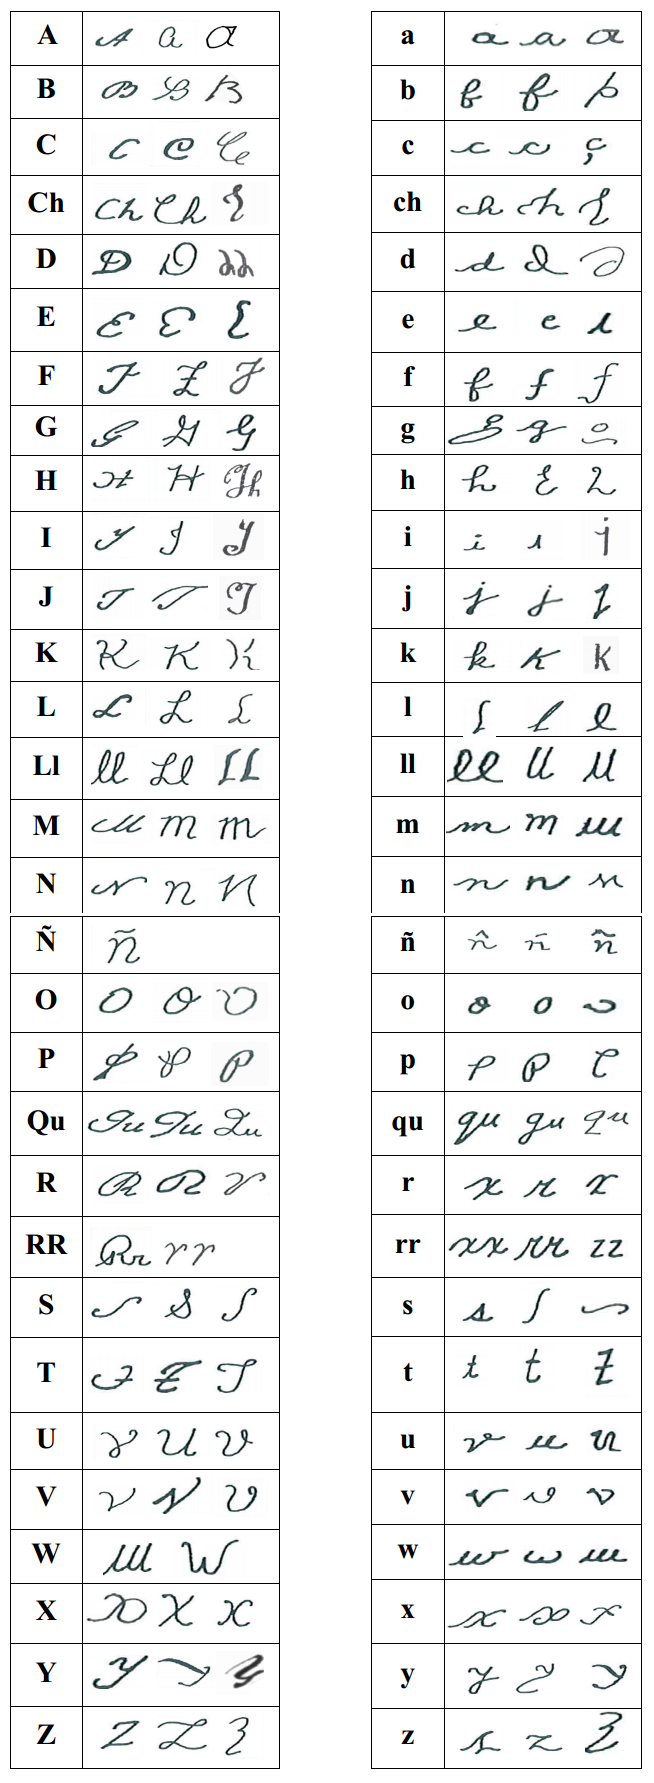 A A a a
B B B B
C C C C
Ch Ch Ch
D D D
E E E E
F F F F
G G G G
H H H
I I I I
J J J J
K K K K
L L L L
Ll ll Ll LL
M M m m
N N n n
Ñ ñ
O O O O
P P P P
Qu Qu Qu Qu
R R R
RR Rr rr
S S S S
T T T T
U U U U
V V V V
W W W
X X X X
Y Y Y Y
Z Z Z Z
a a a a
b b b b
c c c ç
ch ch ch
d d d d
e e e e
f f f f
g g g g
h h h h
i i i i
j j j j
k k k k
l l l l
ll ll ll ll
m m m m
n n n n
ñ ñ ñ ñ
o o o o
p p p p
qu qu qu qu
r r r r
rr rr rr rr
s s s s
t t t t
u u u u
v v v v
w w w w
x x x x
y y y y
z z z z